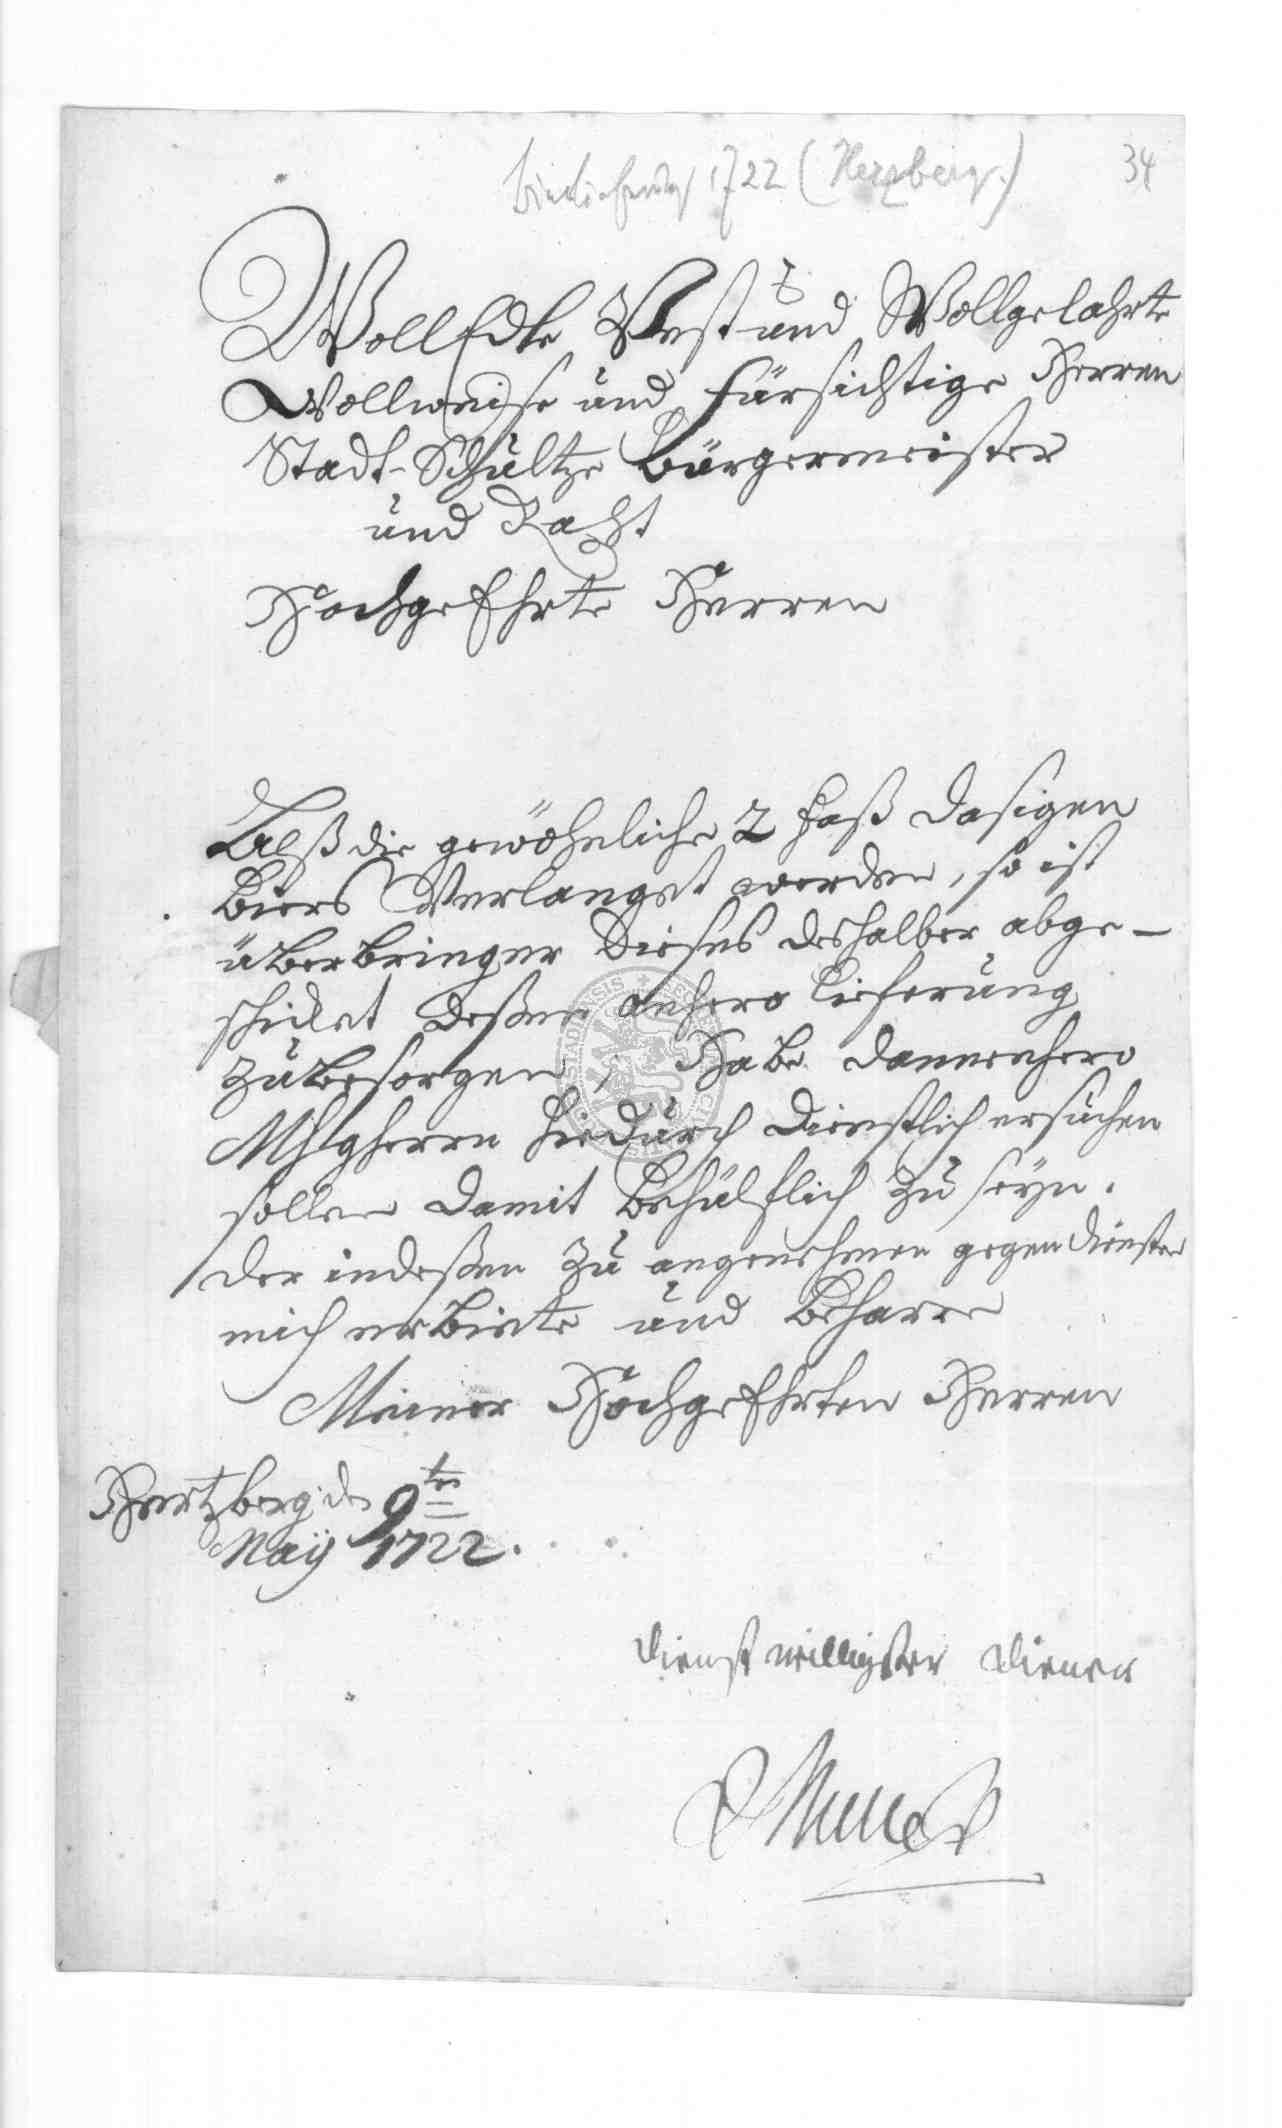 Bierlieferung 1722 (Herzberg.)
34
WollEdle Vest und Wollgelahrte
Wollweise und Fürsichtige Herren
Stadt-Schultze Bürgermeister
und Raht
HochgeEhrte Herren
Alß die gewöhnliche 2 Faß dasigen
Biers Verlanget werden, so ist
überbringer Dieses deshalber abge-
schicket deßen anhero lieferung
zu besorgen, Habe dannenhero
MhgHerren hiedurch dienstlich ersuchen
sollen damit behülflich zu seyn.
der indeßen zu angenehmen gegen diensten
mich erbiete und beharre
Meiner HochgeEhrten Herren
Hertzberg d. 9ten
Maij 1722.
Dienstwilligster Diener
Muller